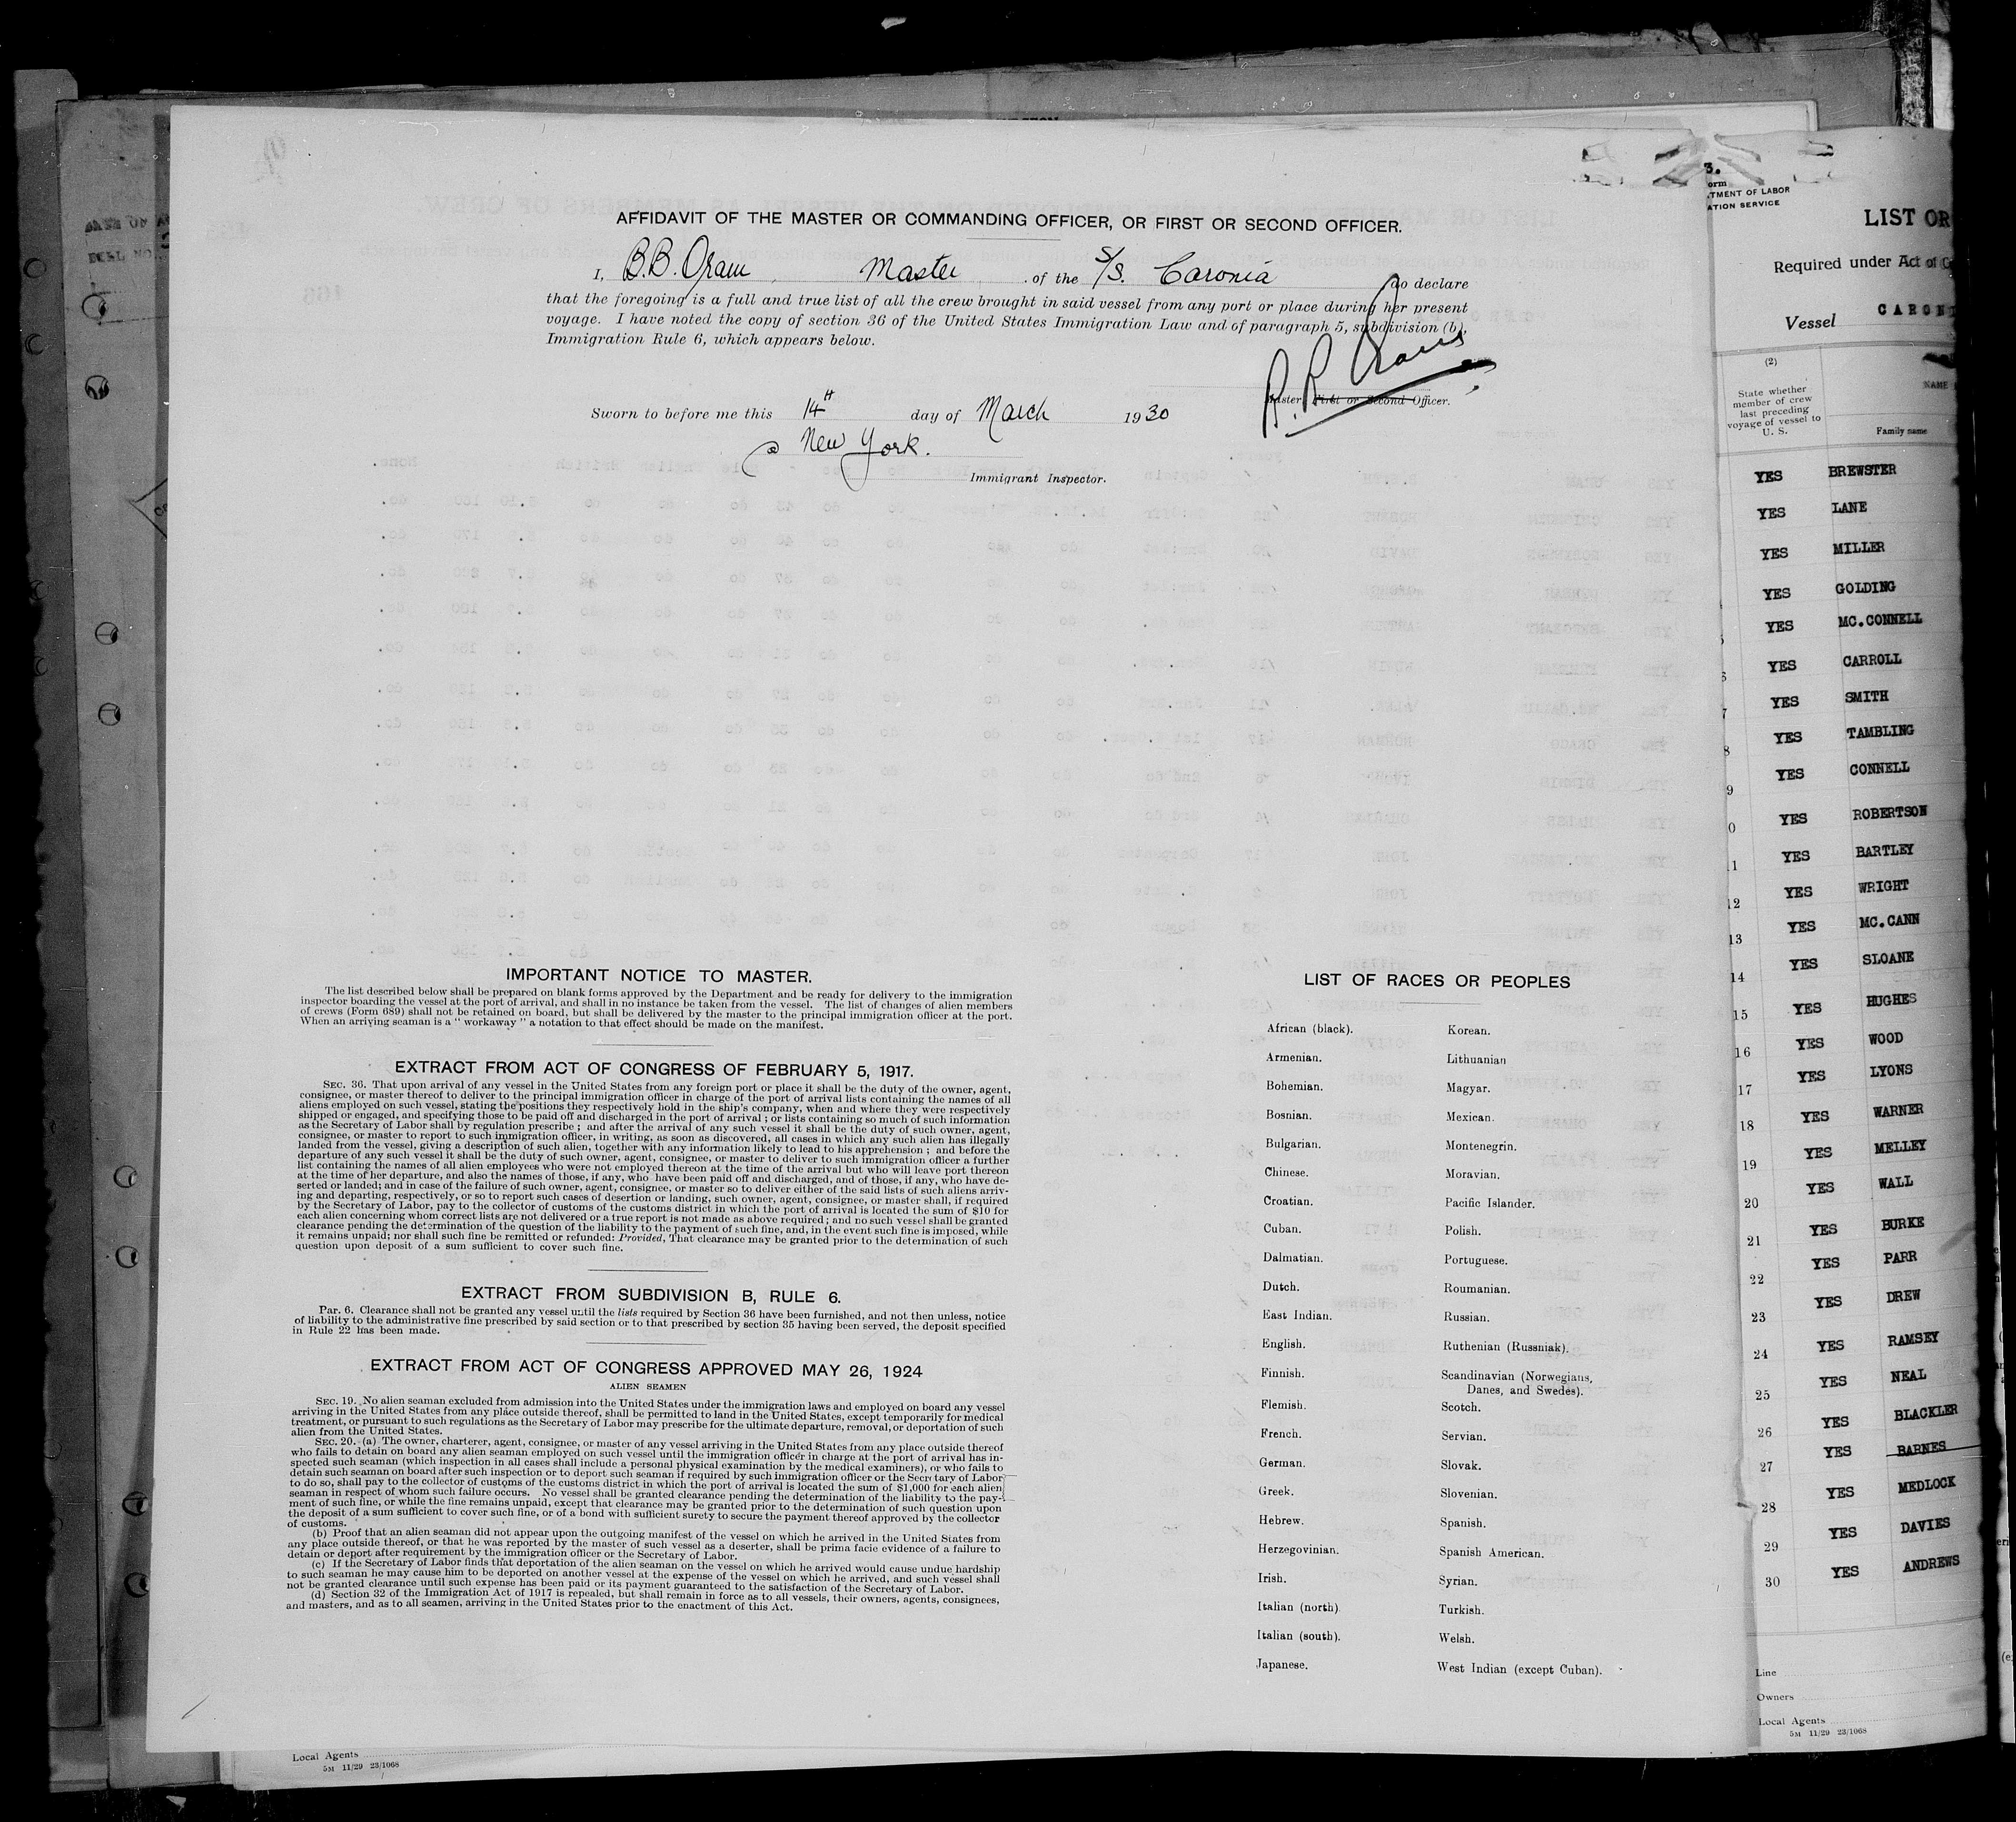 AFFIDAVIT OF THE MASTER OR COMMANDING OFFICER, OR FIRST OR SECOND OFFICER.
I, B.B. Oram, Master of the S/S. Caronia do declare
that the foregoing is a full and true list of all the crew brought in said vessel from any port or place during her present
voyage. I have noted the copy of section 36 of the United States Immigration Law and of paragraph 5, subdivision (b),
Immigration Rule 6, which appears below.
Master, First or Second Officer.
Sworn to before me this 14th day of March 1930
@ New York.
Immigrant Inspector.
IMPORTANT NOTICE TO MASTER.
The list described below shall be prepared on blank forms approved by the Department and be ready for delivery to the immigration
inspector boarding the vessel at the port of arrival, and shall in no instance be taken from the vessel. The list of changes of alien members
of crews (Form 689) shall not be retained on board, but shall be delivered by the master to the principal immigration officer at the port.
When an arriving seaman is a " workaway " a notation to that effect should be made on the manifest.
EXTRACT FROM ACT OF CONGRESS OF FEBRUARY 5, 1917.
SEC. 36. That upon arrival of any vessel in the United States from any foreign port or place it shall be the duty of the owner, agent,
consignee, or master thereof to deliver to the principal immigration officer in charge of the port of arrival lists containing the names of all
aliens employed on such vessel, stating the positions they respectively hold in the ship's company, when and where they were respectively
shipped or engaged, and specifying those to be paid off and discharged in the port of arrival ; or lists containing so much of such information
as the Secretary of Labor shall by regulation prescribe ; and after the arrival of any such vessel it shall be the duty of such owner, agent,
consignee, or master to report to such immigration officer, in writing, as soon as discovered, all cases in which any such alien has illegally
landed from the vessel, giving a description of such alien, together with any information likely to lead to his apprehension ; and before the
departure of any such vessel it shall be the duty of such owner, agent, consignee, or master to deliver to such immigration officer a further
list containing the names of all alien employees who were not employed thereon at the time of the arrival but who will leave port thereon
at the time of her departure, and also the names of those, if any, who have been paid off and discharged, and of those, if any, who have de-
serted or landed; and in case of the failure of such owner, agent, consignee, or master so to deliver either of the said lists of such aliens arriv-
ing and departing, respectively, or so to report such cases of desertion or landing, such owner, agent, consignee, or master shall, if required
by the Secretary of Labor, pay to the collector of customs of the customs district in which the port of arrival is located the sum of $10 for
each alien concerning whom correct lists are not delivered or a true report is not made as above required ; and no such vessel shall be granted
clearance pending the determination of the question of the liability to the payment of such fine, and, in the event such fine is imposed, while
it remains unpaid; nor shall such fine be remitted or refunded: Provided, That clearance may be granted prior to the determination of such
question upon deposit of a sum sufficient to cover such fine.
EXTRACT FROM SUBDIVISION B, RULE 6.
Par. 6. Clearance shall not be granted any vessel until the lists required by Section 36 have been furnished, and not then unless, notice
of liability to the administrative fine prescribed by said section or to that prescribed by section 35 having been served, the deposit specified
in Rule 22 has been made.
EXTRACT FROM ACT OF CONGRESS APPROVED MAY 26, 1924
ALIEN SEAMEN
SEC. 19. No alien seaman excluded from admission into the United States under the immigration laws and employed on board any vessel
arriving in the United States from any place outside thereof, shall be permitted to land in the United States, except temporarily for medical
treatment, or pursuant to such regulations as the Secretary of Labor may prescribe for the ultimate departure, removal, or deportation of such
alien from the United States.
SEC. 20. (a) The owner, charterer, agent, consignee, or master of any vessel arriving in the United States from any place outside thereof
who fails to detain on board any alien seaman employed on such vessel until the immigration officer in charge at the port of arrival has in-
spected such seaman (which inspection in all cases shall include a personal physical examination by the medical examiners), or who fails to
detain such seaman on board after such inspection or to deport such seaman if required by such immigration officer or the Secretary of Labor
to do so, shall pay to the collector of customs of the customs district in which the port of arrival is located the sum of $1,000 for each alien
seaman in respect of whom such failure occurs. No vessel shall be granted clearance pending the determination of the liability to the pay-
ment of such fine, or while the fine remains unpaid, except that clearance may be granted prior to the determination of such question upon
the deposit of a sum sufficient to cover such fine, or of a bond with sufficient surety to secure the payment thereof approved by the collector
of customs.
(b) Proof that an alien seaman did not appear upon the outgoing manifest of the vessel on which he arrived in the United States from
any place outside thereof, or that he was reported by the master of such vessel as a deserter, shall be prima facie evidence of a failure to
detain or deport after requirement by the immigration officer or the Secretary of Labor.
(c) If the Secretary of Labor finds that deportation of the alien seaman on the vessel on which he arrived would cause undue hardship
to such seaman he may cause him to be deported on another vessel at the expense of the vessel on which he arrived, and such vessel shall
not be granted clearance until such expense has been paid or its payment guaranteed to the satisfaction of the Secretary of Labor.
(d) Section 32 of the Immigration Act of 1917 is repealed, but shall remain in force as to all vessels, their owners, agents, consignees,
and masters, and as to all seamen, arriving in the United States prior to the enactment of this Act.
LIST OF RACES OR PEOPLES
African (black). Korean.
Armenian. Lithuanian
Bohemian. Magyar.
Bosnian. Mexican.
Bulgarian. Montenegrin.
Chinese. Moravian.
Croatian. Pacific Islander.
Cuban. Polish.
Dalmatian. Portuguese.
Dutch. Roumanian.
East Indian. Russian.
English. Ruthenian (Russniak).
Finnish. Scandinavian (Norwegians,
Danes, and Swedes).
Flemish. Scotch.
French. Servian.
German. Slovak.
Greek. Slovenian.
Hebrew. Spanish.
Herzegovinian. Spanish American.
Irish. Syrian.
Italian (north). Turkish.
Italian (south). Welsh.
Japanese. West Indian (except Cuban).
Local Agents
5M 11/29 23/1068
3.
orm
TMENT OF LABOR
ATION SERVICE
LIST OR
Required under Act of
Vessel CARONI
(2)
State whether
member of crew
last preceding
voyage of vessel to
U. S.
NAME
Family name
YES BREWSTER
YES LANE
YES MILLER
YES GOLDING
YES MC.CONNELL
6 YES CARROLL
7 YES SMITH
8 YES TAMBLING
9 YES CONNELL
0 YES ROBERTSON
11 YES BARTLEY
12 YES WRIGHT
13 YES MC.CANN
14 YES SLOANE
15 YES HUGHES
16 YES WOOD
17 YES LYONS
18 YES WARNER
19 YES MELLEY
20 YES WALL
21 YES BURKE
22 YES PARR
23 YES DREW
24 YES RAMSEY
25 YES NEAL
26 YES BLACKLER
27 YES BARNES
28 YES MEDLOCK
29 YES DAVIES
30 YES ANDREWS
Line
Owners
Local Agents
5M 11/29 23/1068